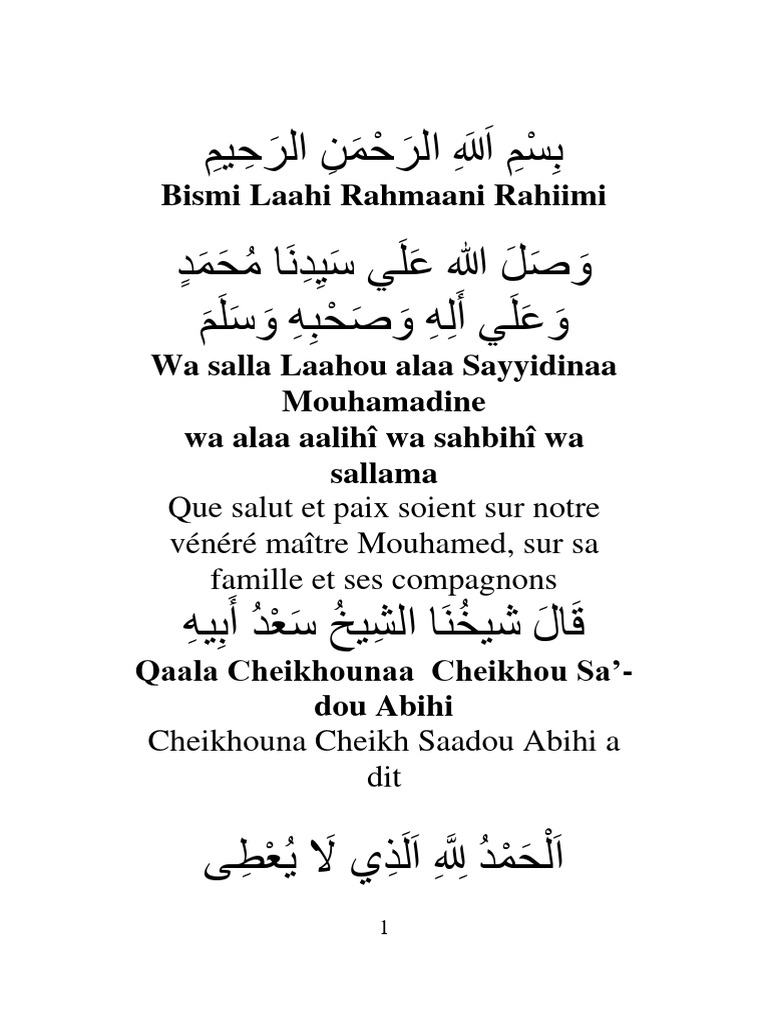 بِسْمِ اَللَهِ الرَحْمَنِ الرَحِيمِ
Bismi Laahi Rahmaani Rahiimi
وَصَلَ الله عَلَي سَيِدِنَا مُحَمَدٍ
وَعَلَي أَلِهِ وَصَحْبِهِ وَسَلَمَ
Wa salla Laahou alaa Sayyidinaa
Mouhamadine
wa alaa aalihî wa sahbihî wa
sallama
Que salut et paix soient sur notre
vénéré maître Mouhamed, sur sa
famille et ses compagnons
قَالَ شيخُنَا الشِيخُ سَعْدُ أَبِيهِ
Qaala Cheikhounaa  Cheikhou Sa’-
dou Abihi
Cheikhouna Cheikh Saadou Abihi a
dit
اَلْحَمْدُ لِلَّهِ اَلَذِي لَا يُعْطِى
1